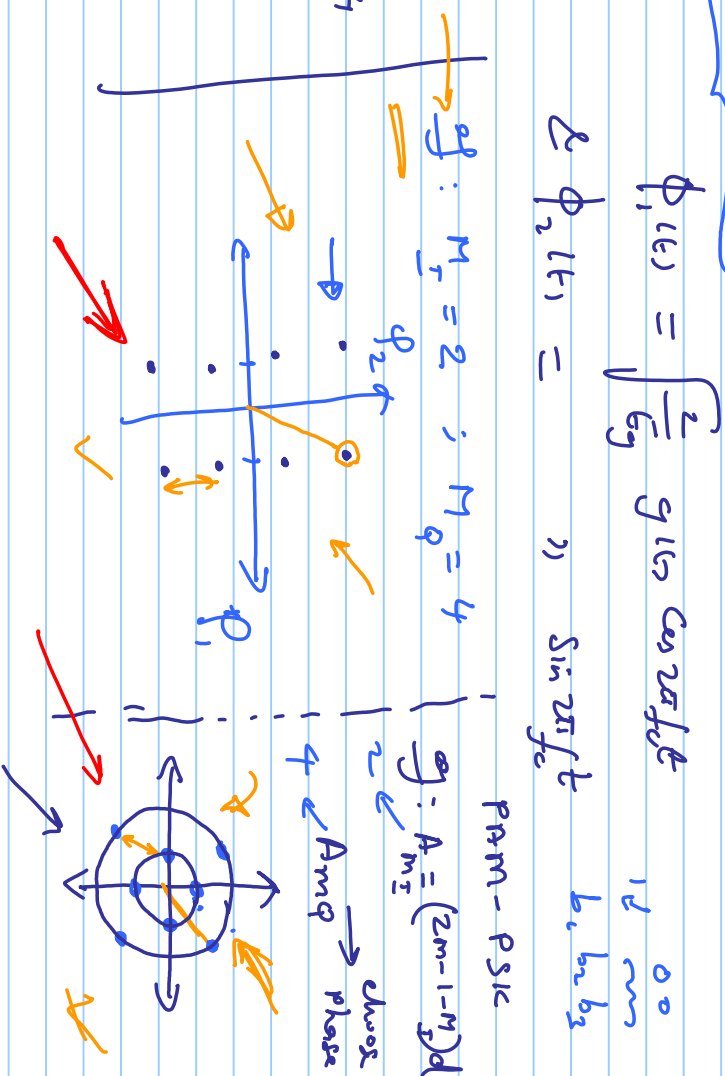 ϕ₁(t) = √(2/Eg) g(t) cos 2πfct
& ϕ₂(t) = " sin 2πfct
b₁ b₂ b₃
eg: M_I = 2 ; M_Q = 4
φ₂
φ₁
PAM-PSK
eg: A_mI = (2m-1-M_I)d
2 ← 
4 ← A_mQ → choose phase